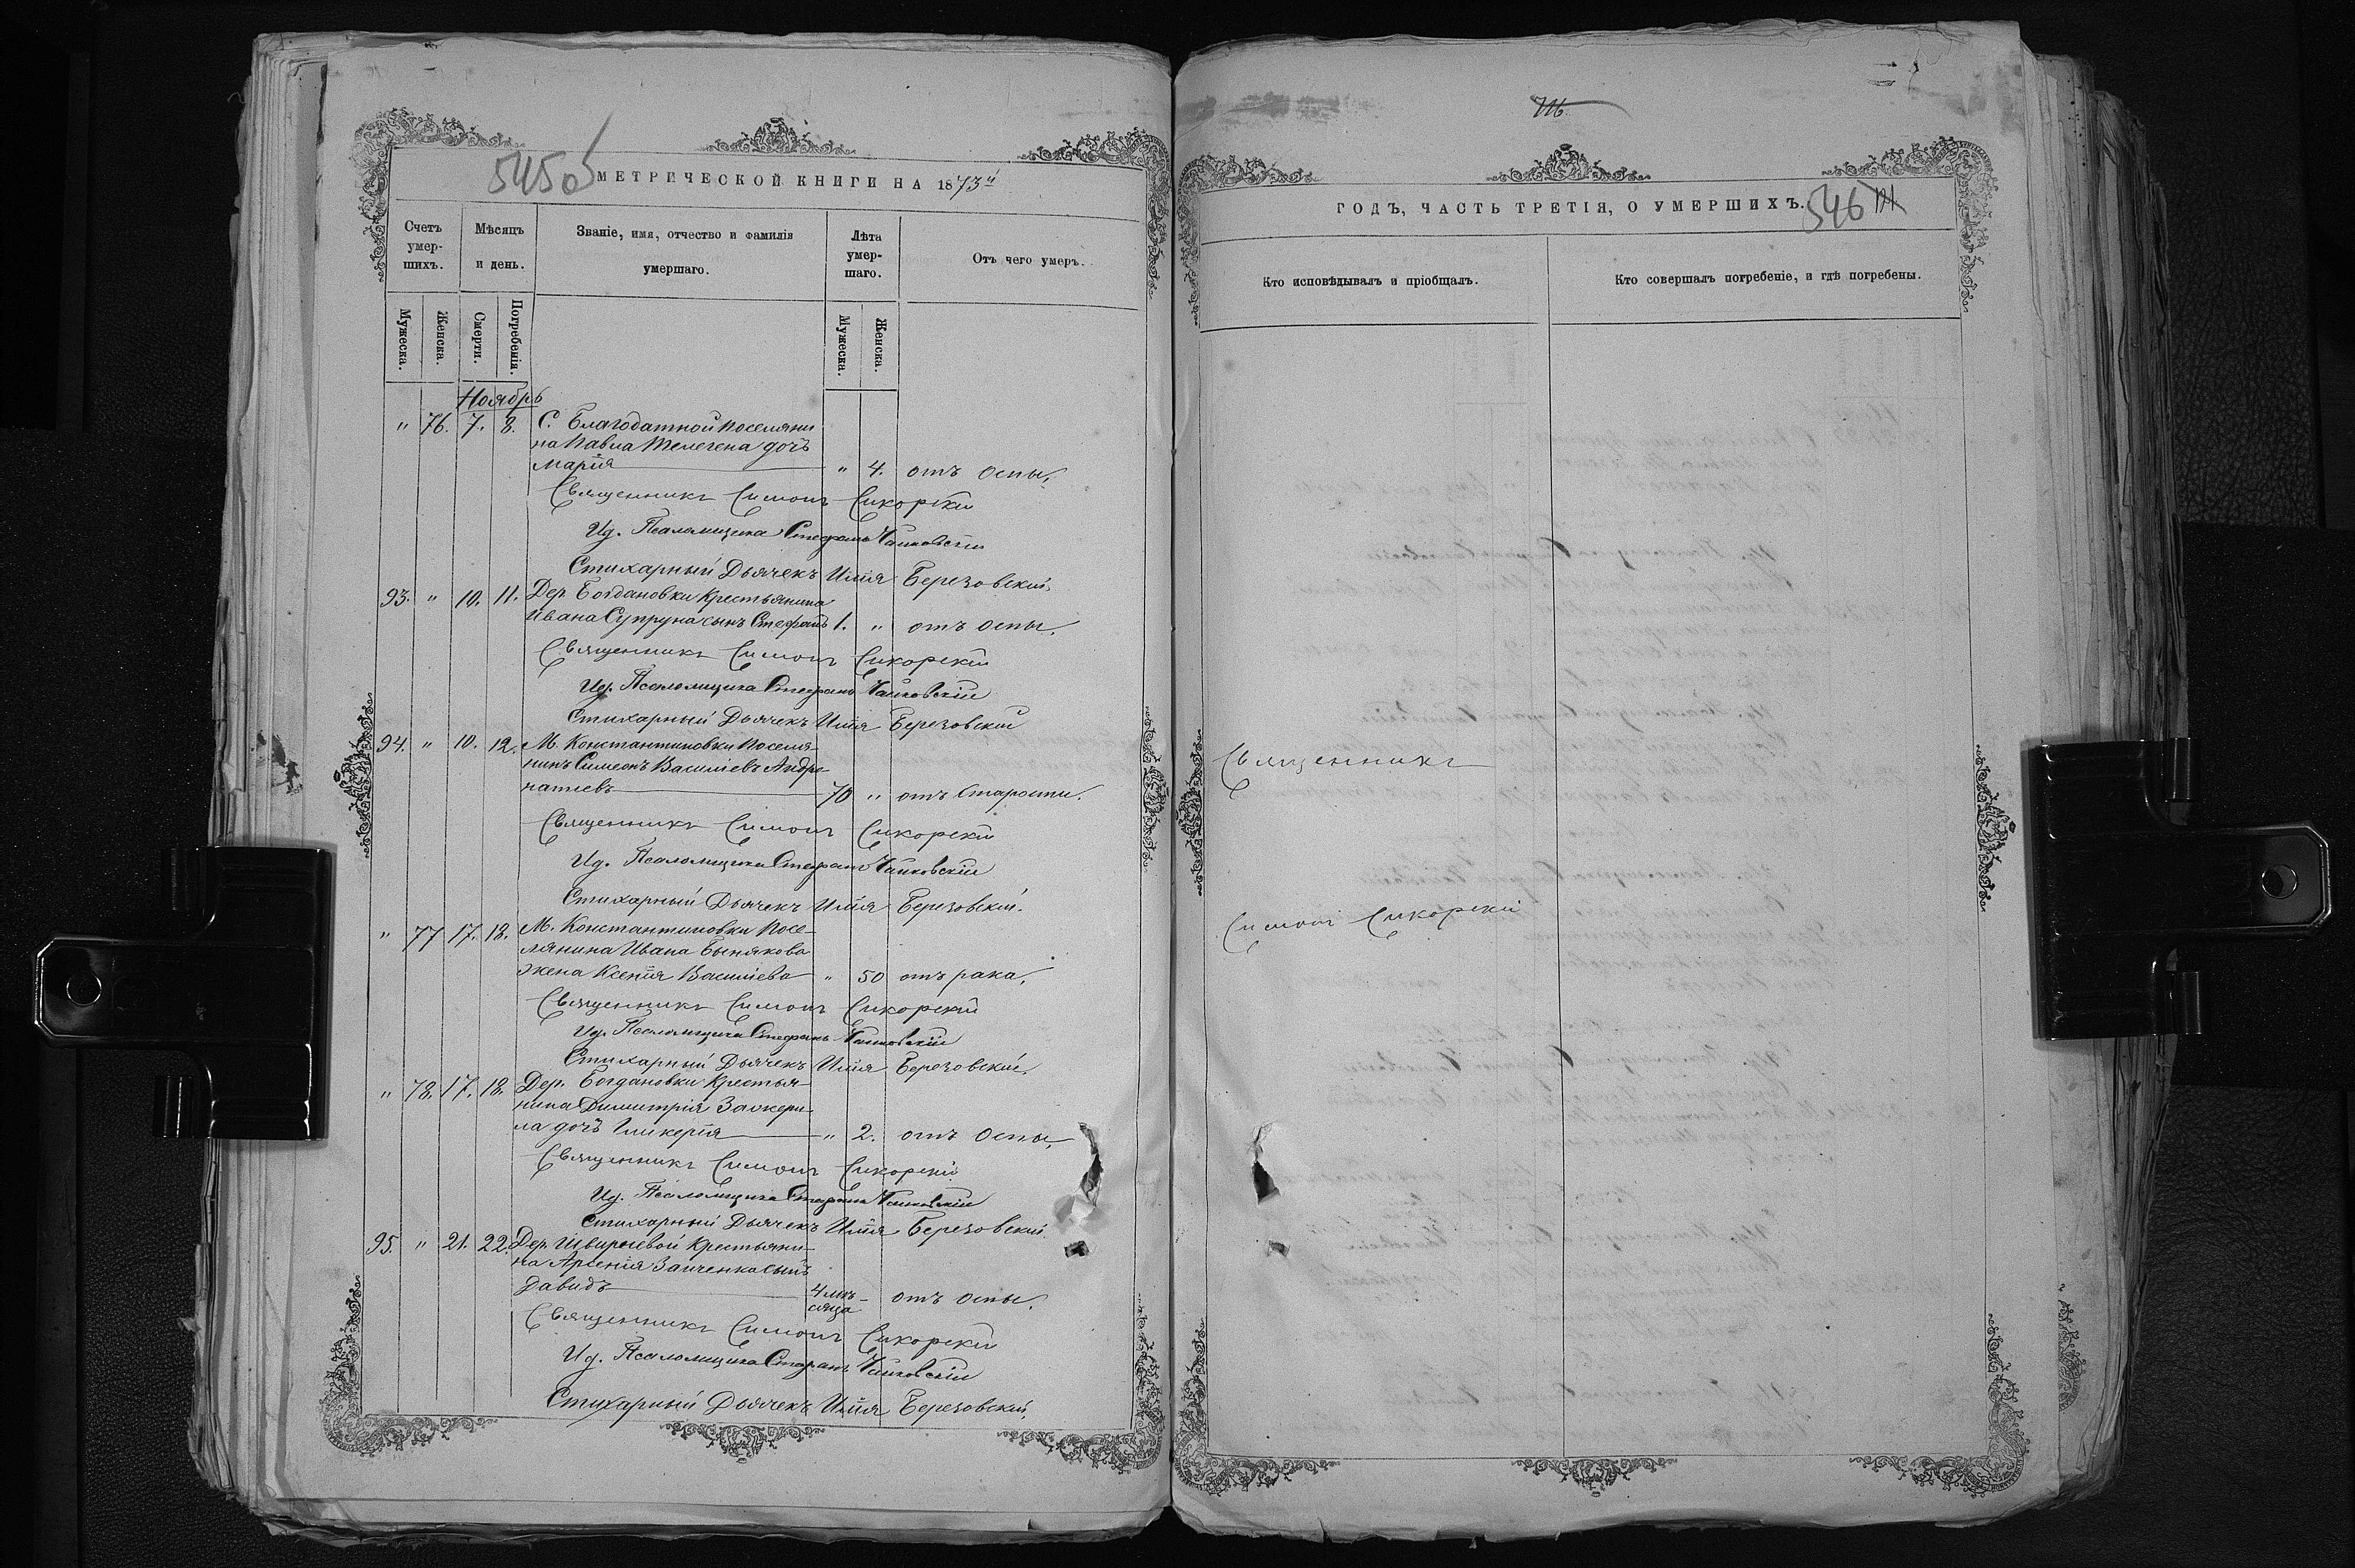 545 об
МЕТРИЧЕСКОЙ КНИГИ НА 1873й
Счетъ умер-шихъ.
Мѣсяцъ и день.
Званіе, имя, отчество и фамилія умершаго.
Лѣта умер-шаго.
Отъ чего умеръ.
Мужеска.
Женска.
Смерти.
Погребенія.
Мужеска.
Женска.
Ноябрь
" 76. 7. 8. С. Благодатной поселяни-
на Павла Телегена дочь
Марія " 4. отъ оспы.
Священникъ Симонъ Сикорскій
Ид. Псаломщика Стефанъ Чайковскій
Стихарный Дьячекъ Илія Березовскій.
93. " 10. 11. Дер. Богдановки крестьянина
Ивана Супруна сынъ Стефанъ 1. " отъ оспы.
Священникъ Симонъ Сикорскій
Ид. Псаломщика Стефанъ Чайковскій
Стихарный Дьячекъ Илія Березовскій
94. " 10. 12. М. Константиновки поселя-
нинъ Симеонъ Василіевъ Андре-
натіевъ 70 " отъ старости.
Священникъ Симонъ Сикорскій
Ид. Псаломщика Стефанъ Чайковскій
Стихарный Дьячекъ Илія Березовскій.
" 77 17. 18. М. Константиновки посе-
лянина Ивана
жена Ксенія Василіева " 50 отъ рака.
Священникъ Симонъ Сикорскій
Ид. Псаломщика Стефанъ Чайковскій
Стихарный Дьячекъ Илія Березовскій.
" 78. 17. 18. Дер. Богдановки крестья-
нина Димитрія
ла дочь Гликерія " 2. отъ оспы.
Священникъ Симонъ Сикорскій
Ид. Псаломщика Стефанъ Чайковскій
Стихарный Дьячекъ Илія Березовскій.
95. " 21. 22. Дер. крестьяни-
на Арсенія Заиченка сынъ
Давидъ 4 мѣ-
сяца отъ оспы.
Священникъ Симонъ Сикорскій
Ид. Псаломщика Стефанъ Чайковскій
Стихарный Дьячекъ Илія Березовскій.
ГОДЪ, ЧАСТЬ ТРЕТІЯ, О УМЕРШИХЪ.
546
Кто исповѣдывалъ и пріобщалъ.
Кто совершалъ погребеніе, и гдѣ погребены.
Священникъ
Симонъ Сикорскій